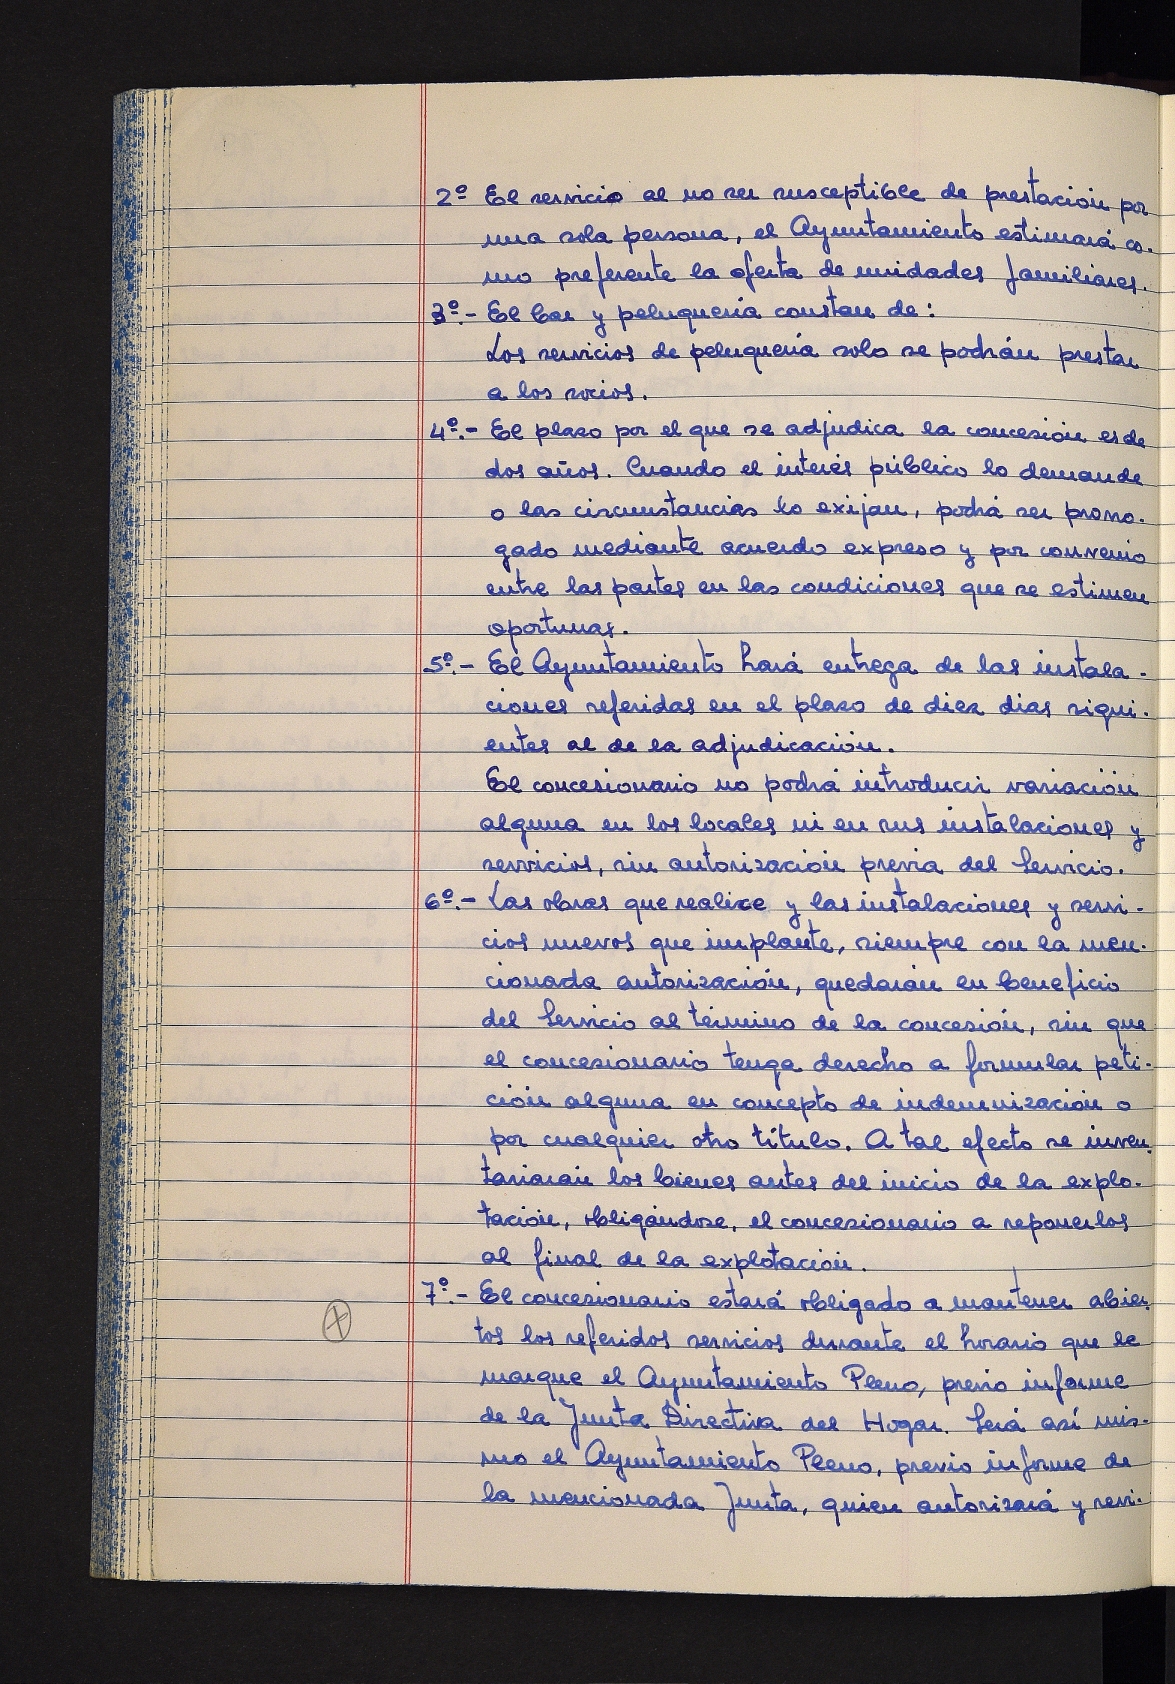 2º El servicio al no ser susceptible de prestación por
una sola persona, el Ayuntamiento estimará co-
mo preferente la oferta de unidades familiares.
3º.- El bar y peluquería constan de:
Los servicios de peluquería solo se podrán prestar
a los socios.
4º.- El plazo por el que se adjudica la concesión es de
dos años. Cuando el interés público lo demande
o las circunstancias lo exijan, podrá ser prorro-
gado mediante acuerdo expreso y por convenio
entre las partes en las condiciones que se estimen
oportunas.
5º.- El Ayuntamiento hará entrega de las instala-
ciones referidas en el plazo de diez dias sigui-
entes al de la adjudicación.
El concesionario no podrá introducir variación
alguna en los locales ni en sus instalaciones y
servicios, sin autorización previa del Servicio.
6º.- Las obras que realice y las instalaciones y servi-
cios nuevos que implante, siempre con la men-
cionada autorización, quedarán en beneficio
del Servicio al término de la concesión, sin que
el concesionario tenga derecho a formular peti-
ción alguna en concepto de indemnización o
por cualquier otro título. A tal efecto se inven-
tariarán los bienes antes del inicio de la explo-
tación, obligándose, el concesionario a reponerlos
al final de la explotación.
7º.- El concesionario estará obligado a mantener abier-
tos los referidos servicios durante el horario que le
marque el Ayuntamiento Pleno, previo informe
de la Junta Directiva del Hogar. Será así mis-
mo el Ayuntamiento Pleno, previo informe de
la mencionada Junta, quien autorizará y revi-